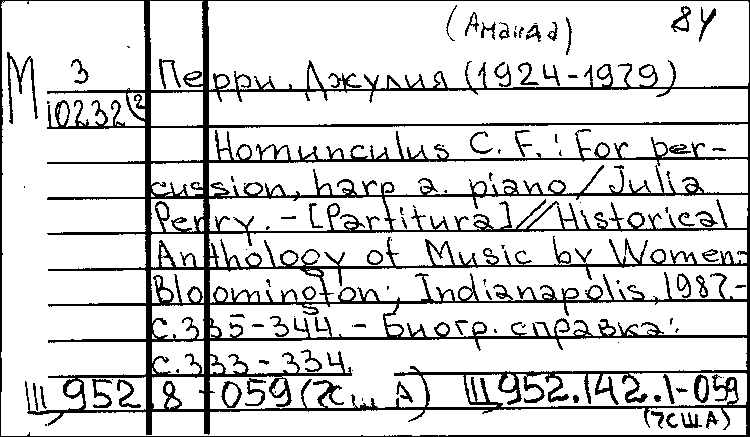 (Аманда) 84
М 3 Перри, Джулия (1924-1979)
10232(2
Homunculus C. F. : For per-
cussion, harp a. piano / Julia
Perry. - [Partitura] // Historical
Anthology of Music by Women.-
Bloomington; Indianapolis, 1987.-
с. 335-344. - Биогр. справка:
с. 333-334.
Щ952.8-059(7сшА) Щ952.142.1-059
(7США)